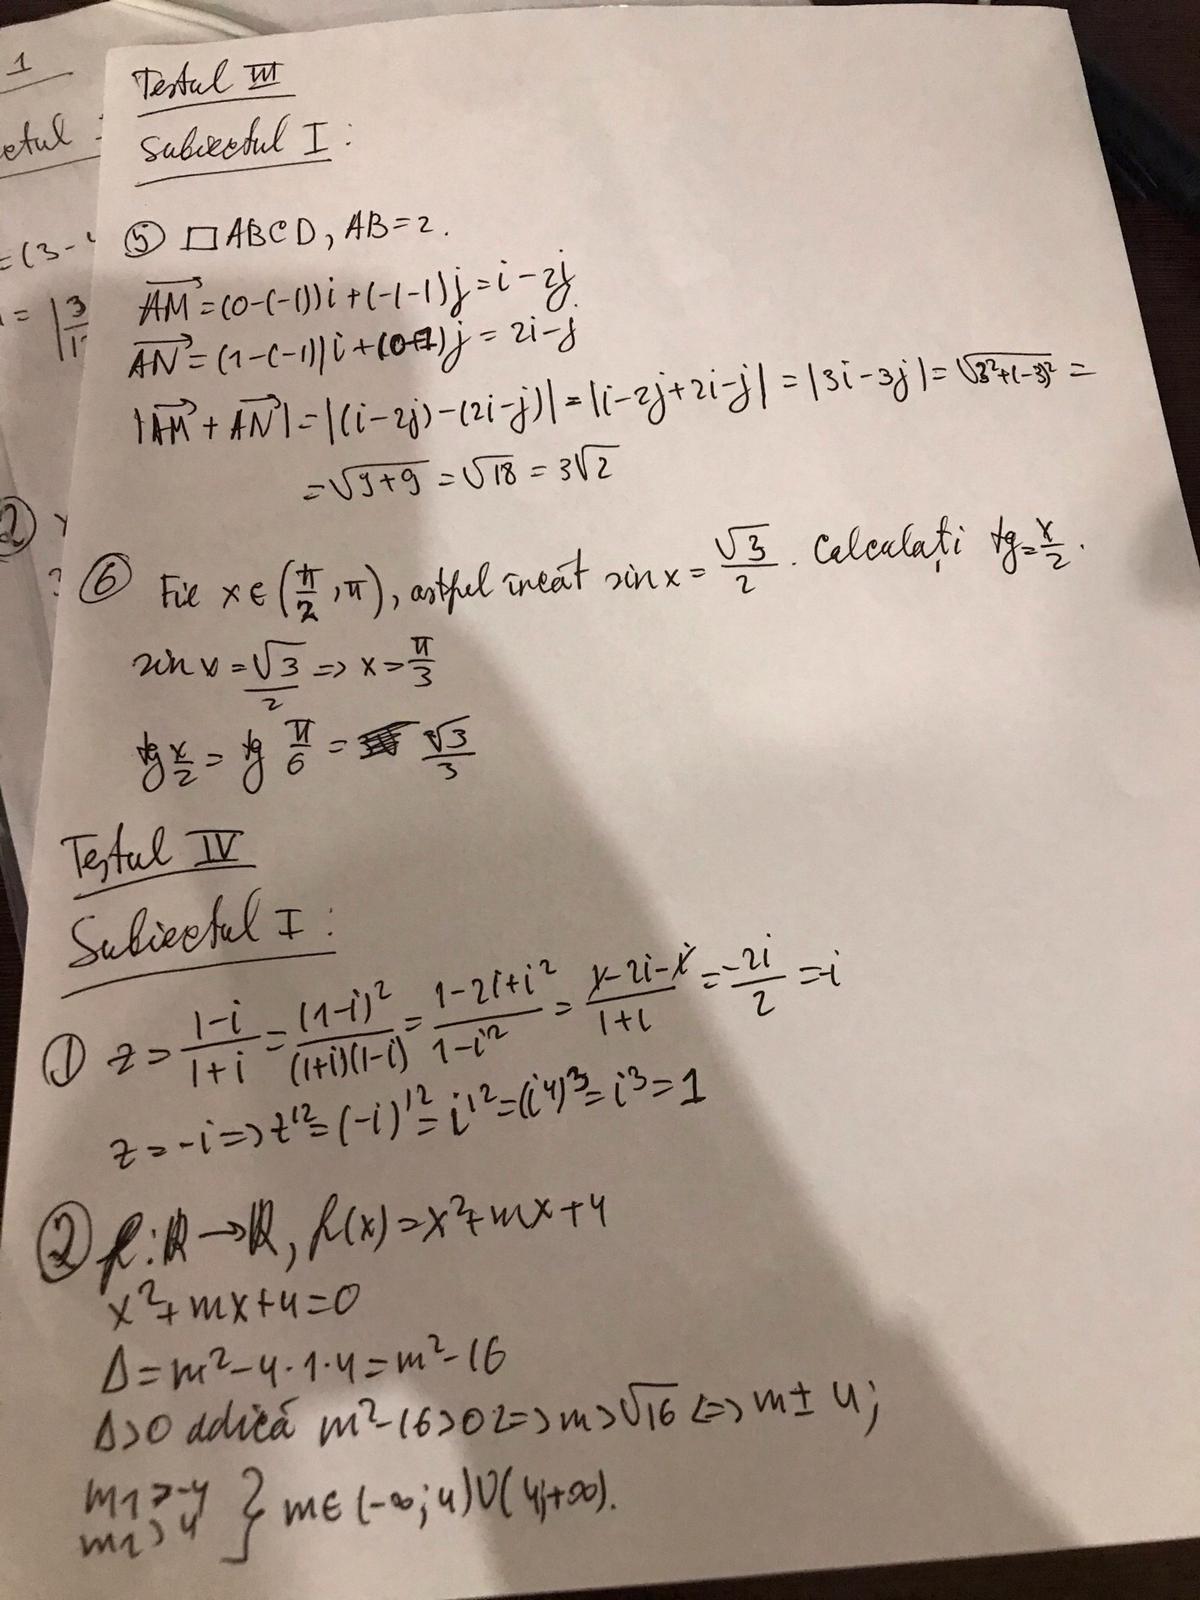 1
Testul III
Subiectul I:
⑤ □ABCD, AB=2.
AM=(0-(-1))i+(-1-1)j=i-2j
AN=(1-(-1))i+(0-1)j=2i-j
|AM+AN|=|(i-2j)-(2i-j)|=|i-2j+2i-j|=|3i-3j|=√3²+(-3)²=
=√9+9=√18=3√2
⑥ Fie x∈(π/2,π), astfel încât sin x=√3/2. Calculați tg=x/2.
sin x=√3/2=>x=π/3
tg x/2=tg π/6=√3/3
Testul IV
Subiectul I:
① z=1-i/1+i=(1-i)²/(1+i)(1-i)=1-2i+i²/1-i²=1-2i-1/1+1=-2i/2=-i
z=-i=>z¹²=(-i)¹²=i¹²=(i⁴)³=i³=1
② f:ℝ→ℝ, f(x)=x²+mx+4
x²+mx+4=0
Δ=m²-4·1·4=m²-16
Δ>0 adică m²-16>0<=>m>√16<=>m±4;
m1>-4
m2>4 } m∈(-∞;4)∪(4;+∞).